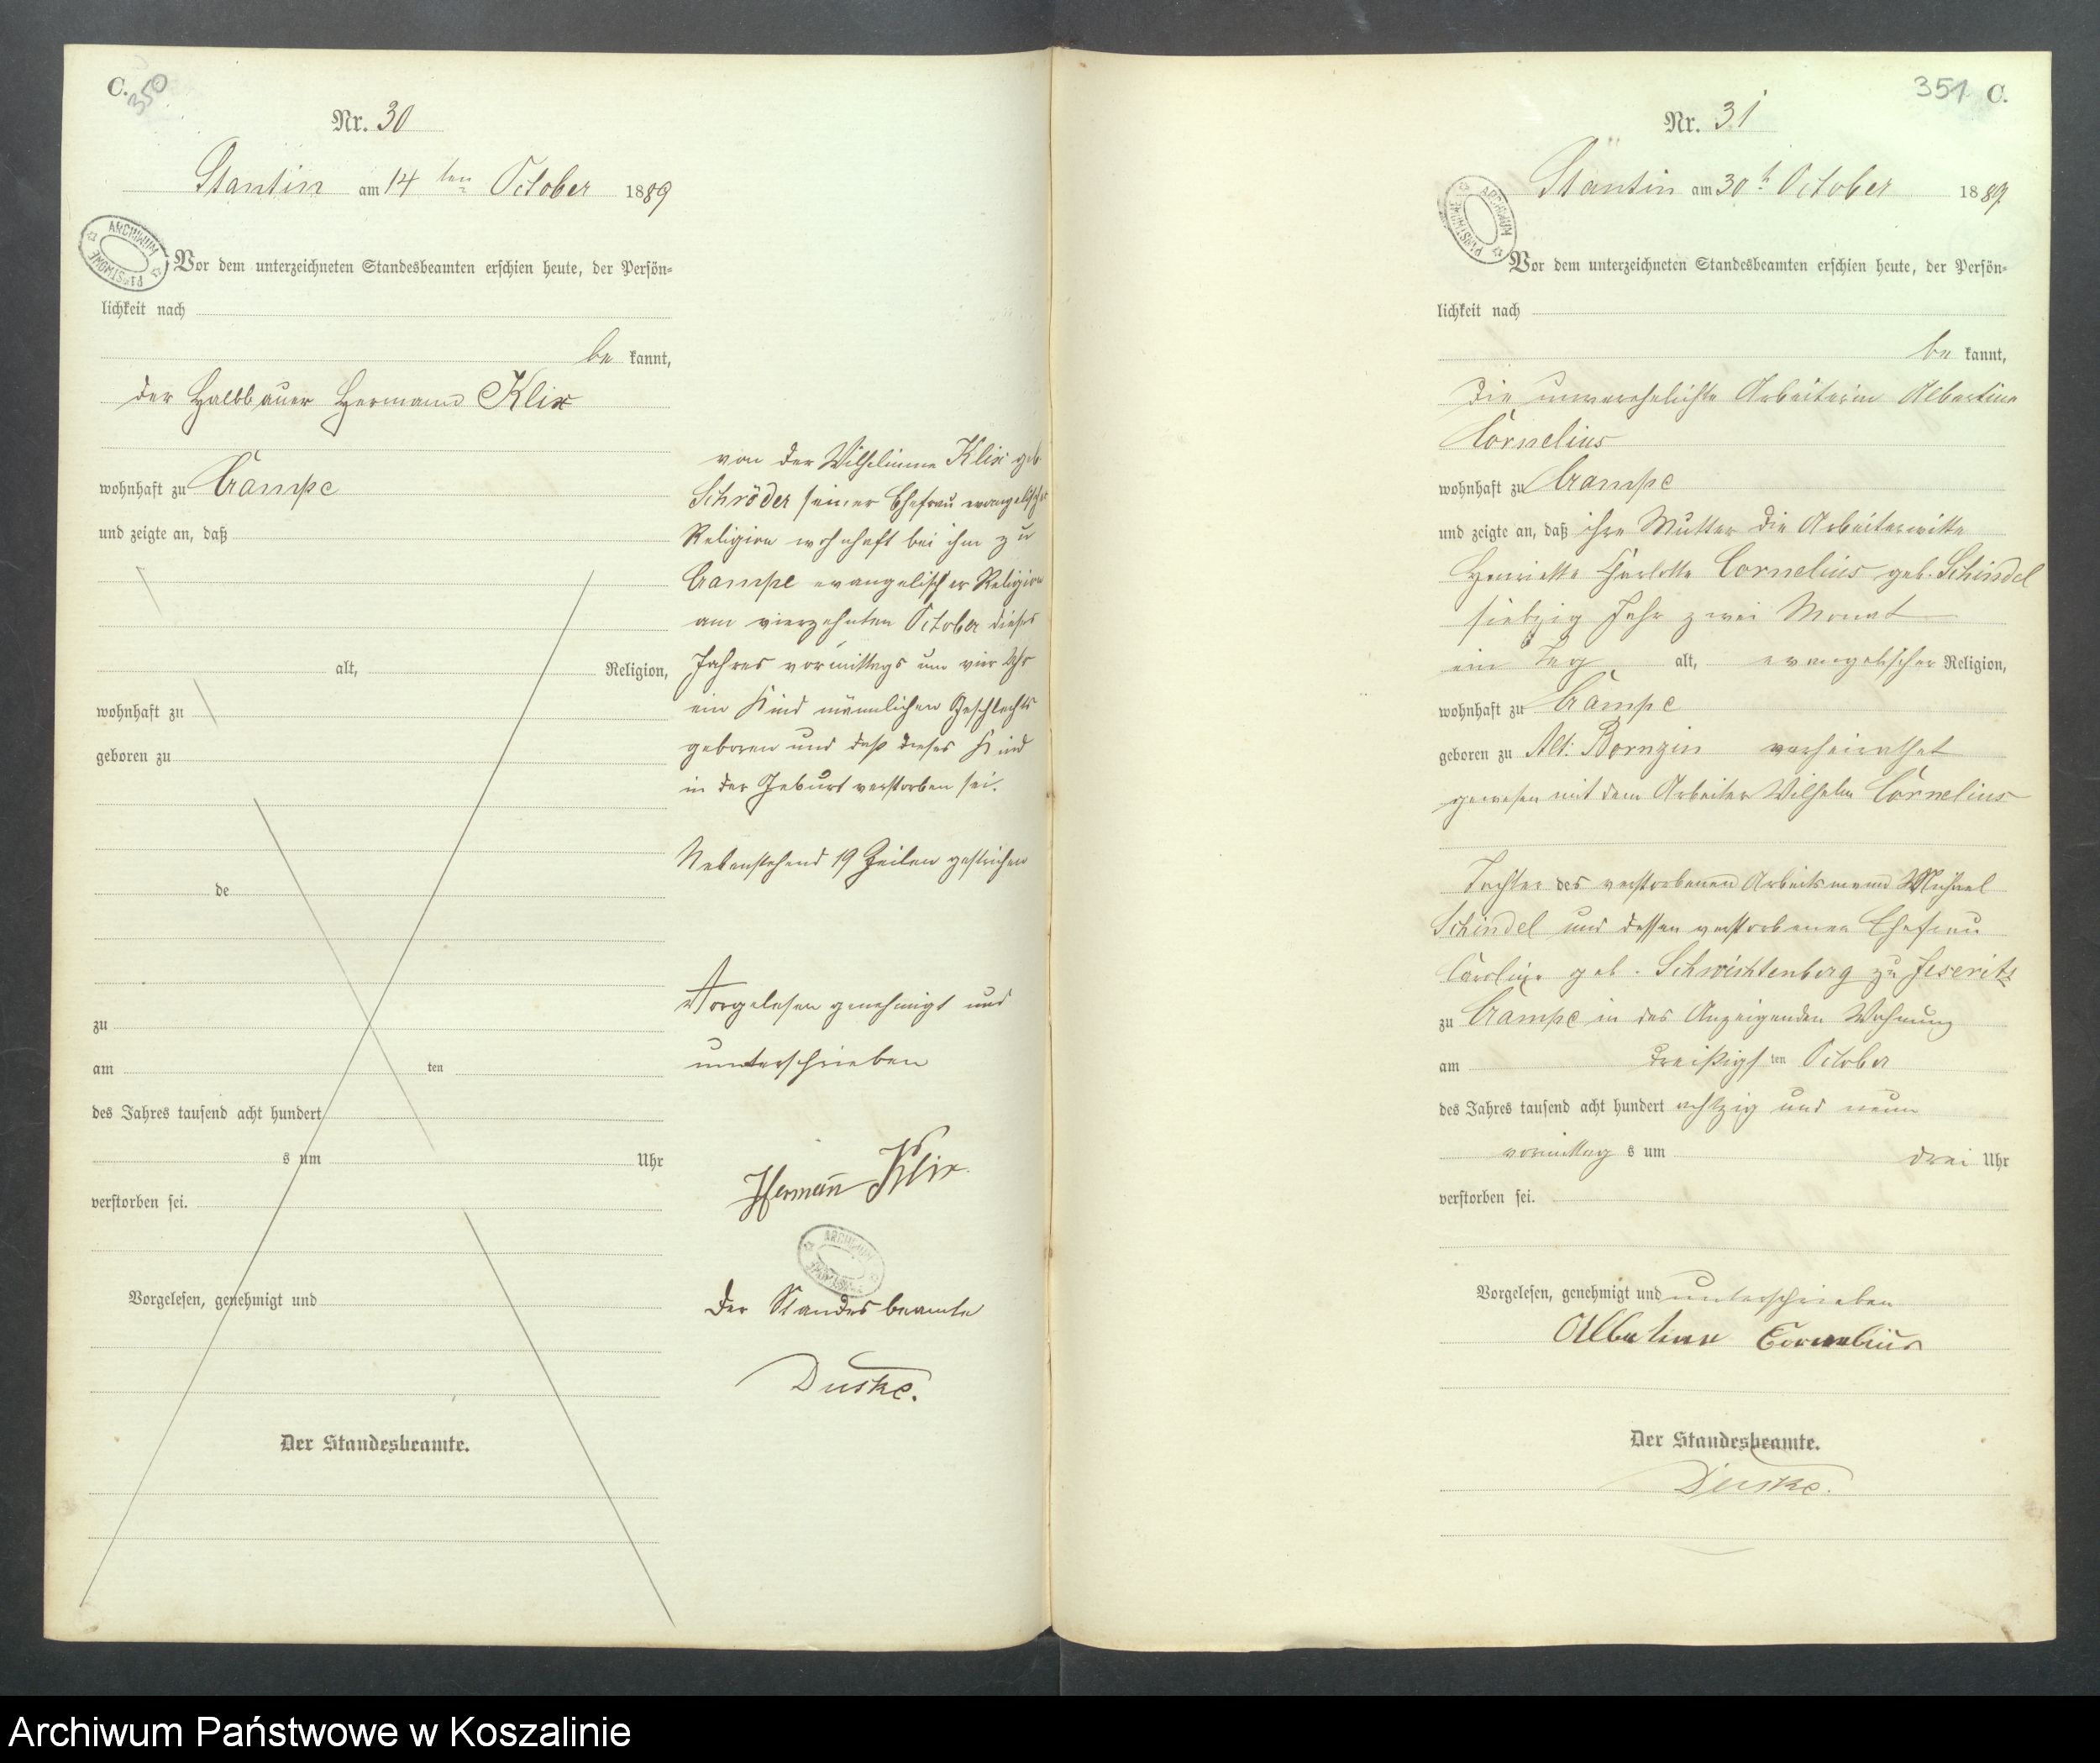 C. 350
Nr. 30
Stantin am 14 ten October 1889
ARCHIWUM PAŃSTWOWE
Vor dem unterzeichneten Standesbeamten erschien heute, der Persön-
lichkeit nach
be kannt,
der Halbbauer Hermann Klix
wohnhaft zu Crampe
und zeigte an, daß
alt, Religion,
wohnhaft zu
geboren zu
de
zu
am ten
des Jahres tausend acht hundert
s um Uhr
verstorben sei.
Vorgelesen, genehmigt und
Der Standesbeamte.
von der Wilhelmine Klix geb
Schröder seiner Ehefrau evangelischer
Religion wohnhaft bei ihm zu
Crampe evangelischer Religion
am vierzehnten October dieses
Jahres vormittags um vier Uhr
ein Kind männlichen Geschlechts
geboren und daß dieses Kind
in der Geburt verstorben sei.
Nebenstehend 19 Zeilen gestrichen
Vorgelesen genehmigt und
unterschrieben
Hermann Klix.
ARCHIWUM PAŃSTWOWE
Der Standesbeamte
Duske.
351 C.
Nr. 31
Stantin am 30 t October 1889
ARCHIWUM PAŃSTWOWE
Vor dem unterzeichneten Standesbeamten erschien heute, der Persön-
lichkeit nach
be kannt,
die unverehelichte Arbeiterin Albertine
Cornelius
wohnhaft zu Crampe
und zeigte an, daß ihre Mutter die Arbeiterwittwe
Henriette Charlotte Cornelius geb. Schindel
siebzig Jahr zwei Monat
ein Tag alt, evangelischer Religion,
wohnhaft zu Crampe
geboren zu Alt: Bornzin verheirathet
gewesen mit dem Arbeiter Wilhelm Cornelius
Tochter des verstorbenen Arbeitsmann Michael
Schindel und dessen verstorbenen Ehefrau
Caroline geb. Schwichtenberg zu Jeseritz
zu Crampe in des Anzeigenden Wohnung
am dreißigs ten October
des Jahres tausend acht hundert achtzig und neun
vormittag s um drei Uhr
verstorben sei.
Vorgelesen, genehmigt und unterschrieben
Albertine Cornelius
Der Standesbeamte.
Duske.
Archiwum Państwowe w Koszalinie